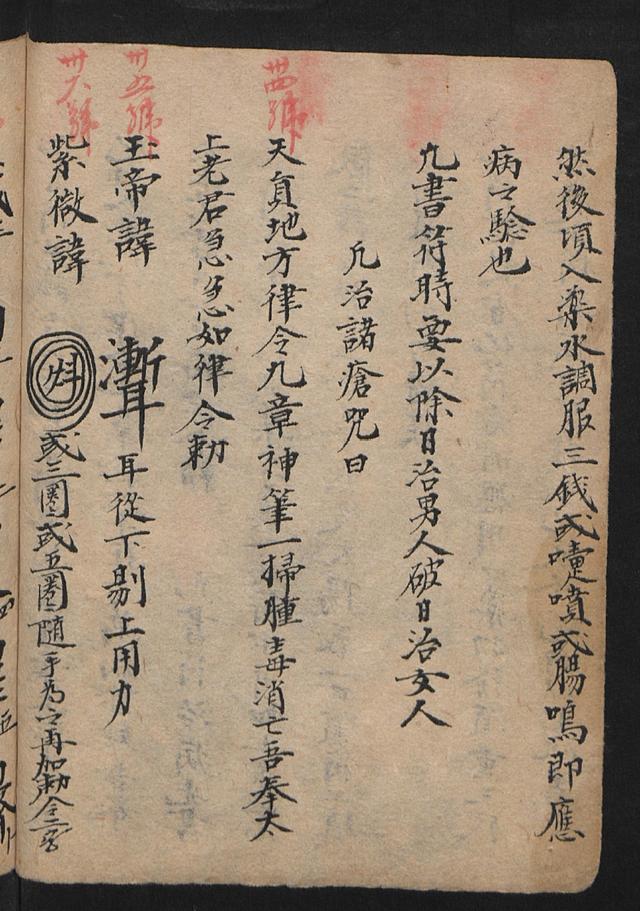 然後項入藥水調服三錢或嚏噴或腸鳴即應
病之驗也
凡書符時要以除日治男人破日治女人
凡治諸瘡咒曰
卅四號
天貟地方律令九章神筆一掃腫毒消亡吾奉太
上老君急急如律令勅
卅五號
玉帝諱 耳從下剔上用力
卅六號
紫微諱 或三圈或五圈随手為之再加勅令二字